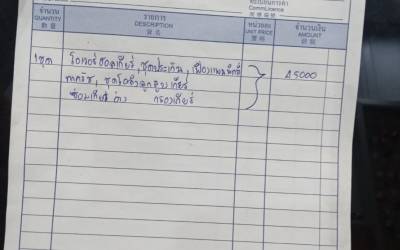 ทะเบียนการค้า
CommLicence
จำนวน
QUANTITY
數 量
รายการ
DESCRIPTION
貨 名
หน่วยละ
UNIT PRICE
單 格
จำนวนเงิน
AMOUNT
銀 額
1ชุด โอเวอร์ฮอลเกียร์, ชุดประเก็น, เฟือง
45000
ชุดโอริงลูกสูบ เกียร์
ซ่อมเกียร์ กรองเกียร์